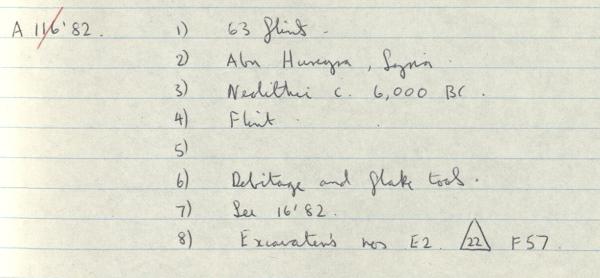 A 116'82. 1) 63 flints.
2) Abu Hureyra, Syria.
3) Neolithic c. 6,000 BC.
4) Flint.
5)
6) Debitage and flake tools.
7) See 16'82.
8) Excavation's nos E2. 22 F57.